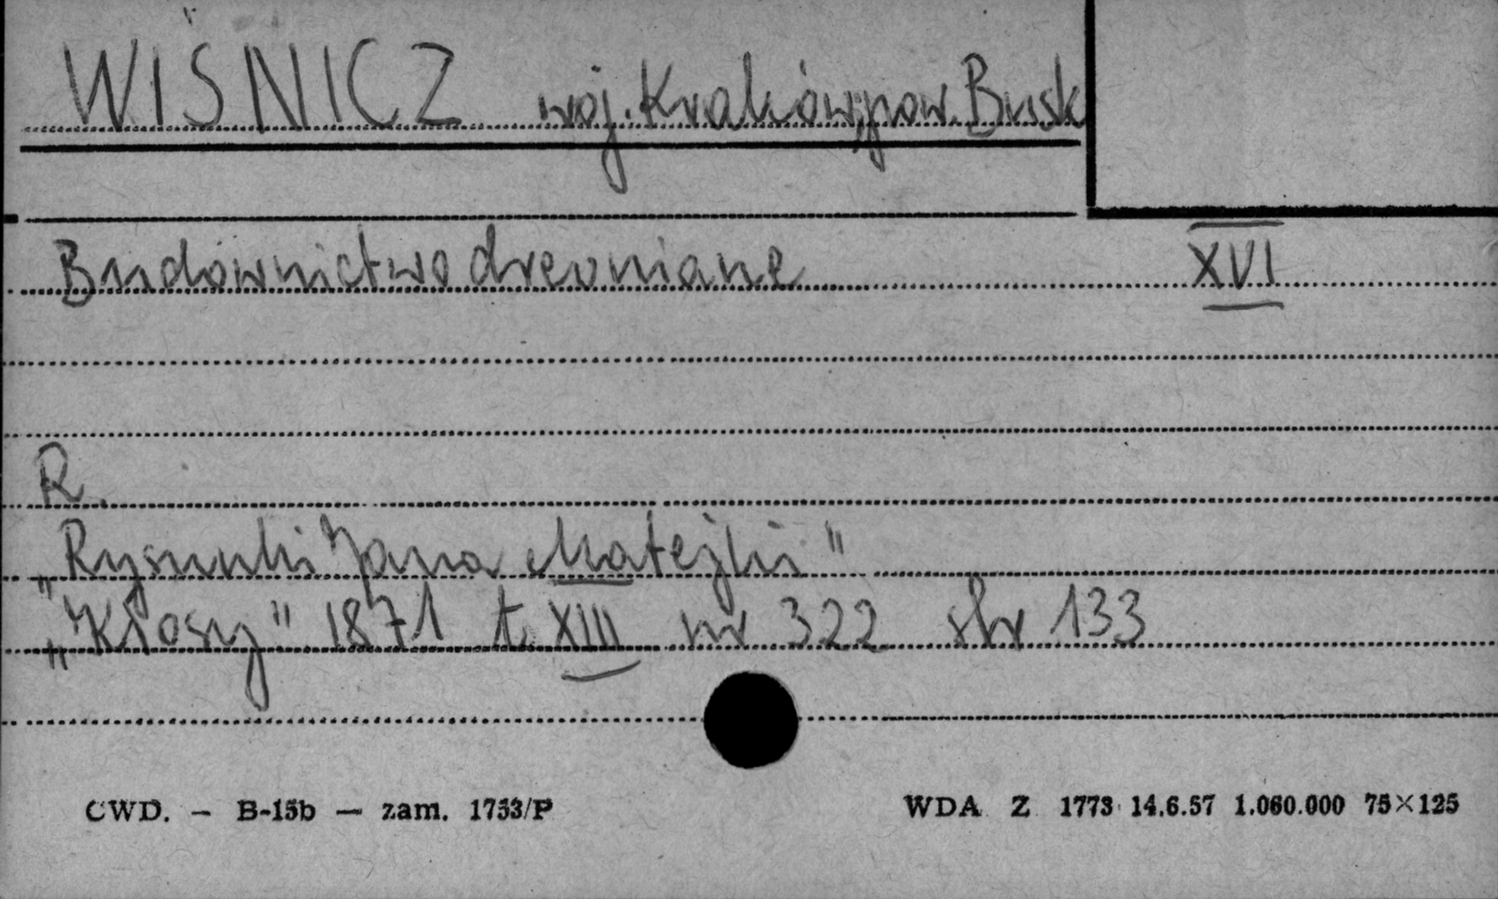 WIŚNICZ woj. Kraków, pow. Busk
Budownictwo drewniane XVI
R.
„Rysunki Jana Matejki"
„Kłosy" 1871 t. XIII nr 322 str 133
CWD. — B-15b — zam. 1753/P WDA Z 1773 14.6.57 1.060.000 75×125